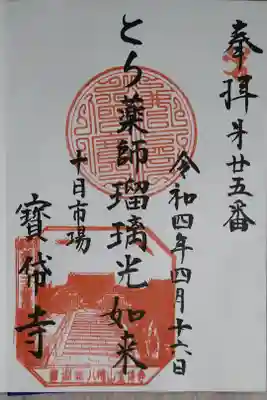 奉拝 第廿五番
令和四年四月十六日
とら薬師瑠璃光如来
十日市場
寳帒寺